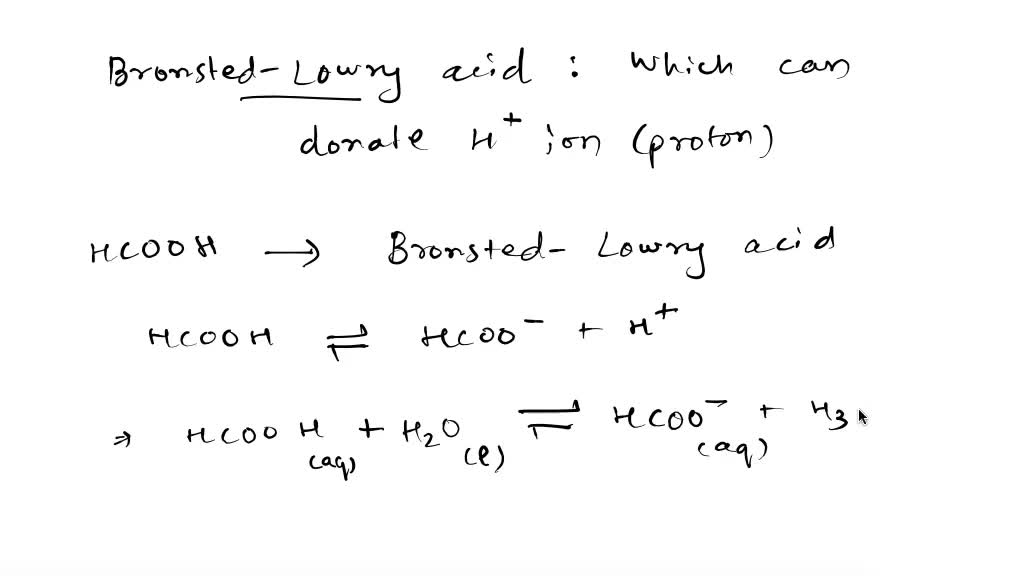 Bronsted-Lowry acid : which can
donate H⁺ ion (proton)
HCOOH → Bronsted-Lowry acid
HCOOH ⇌ HCOO⁻ + H⁺
⇒ HCOOH (aq) + H₂O (l) ⇌ HCOO⁻ (aq) + H₃